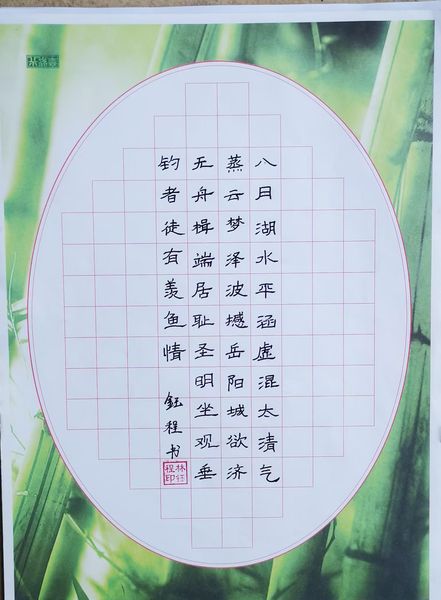 八月湖水平涵虚混太清气
蒸云梦泽波撼岳阳城欲济
无舟楫端居耻圣明坐观垂
钓者徒有羡鱼情
钰程书